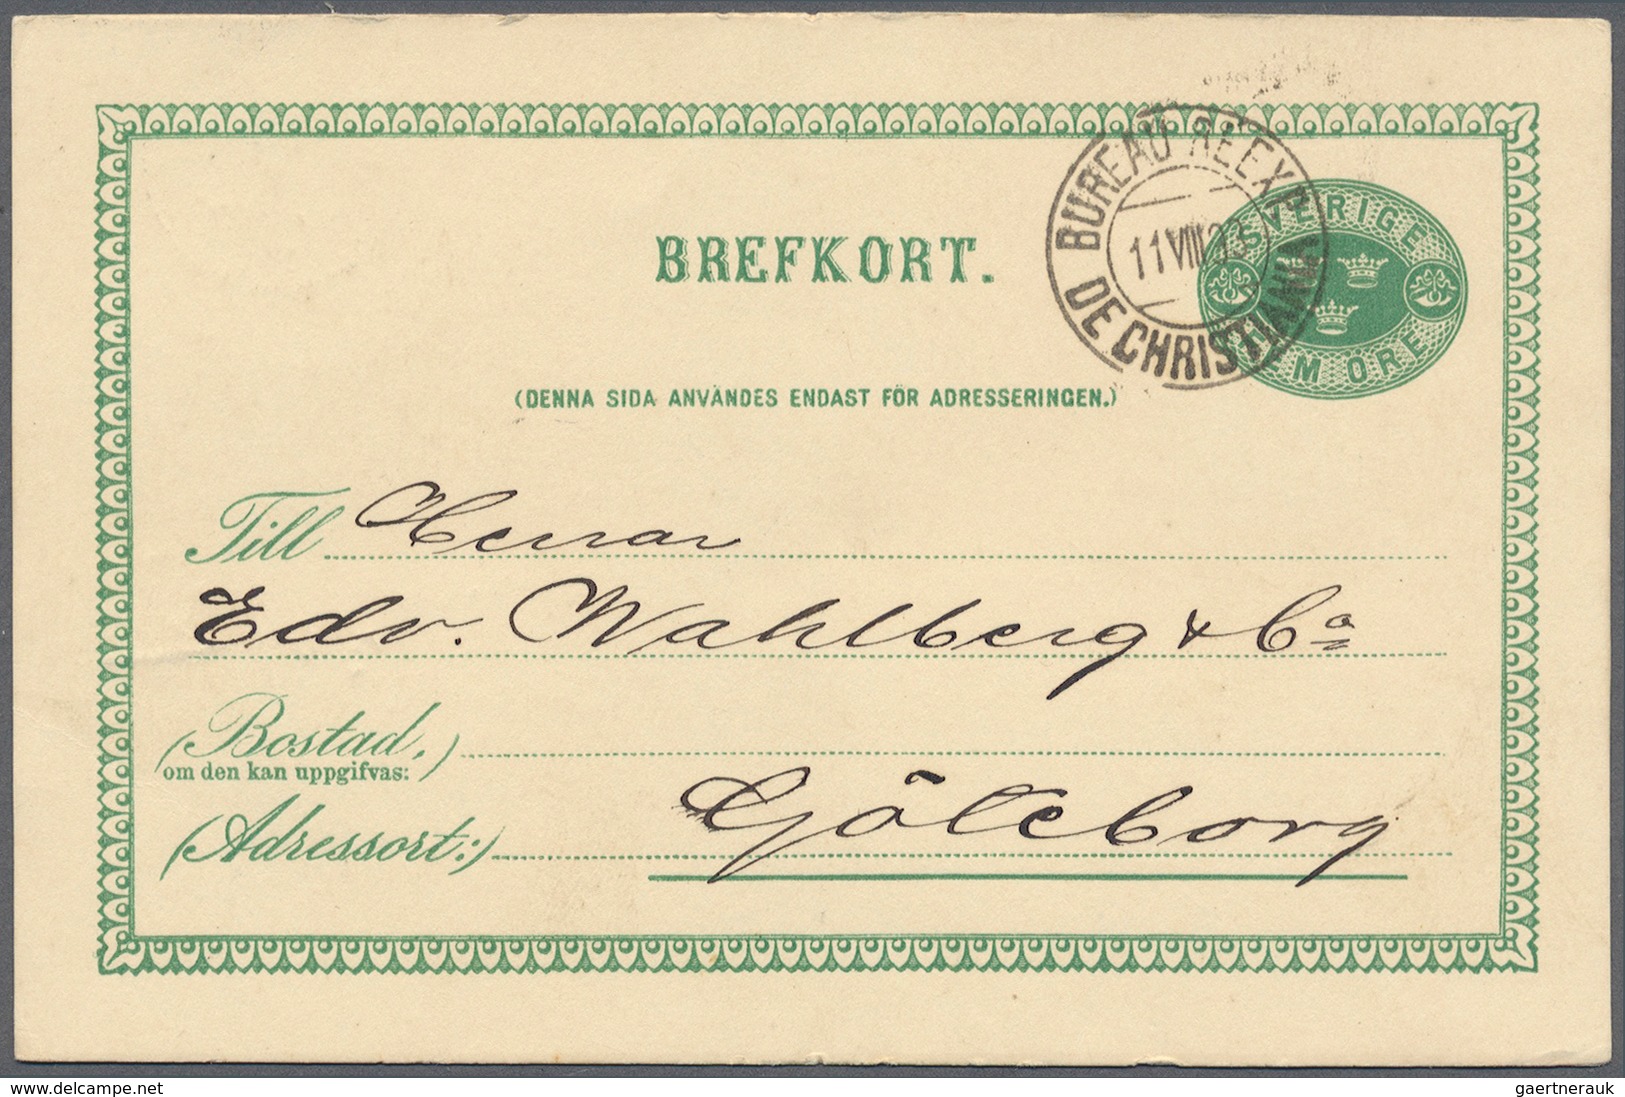 BREFKORT.
BUREAU RÉEXP.
11 VIII
DE CHRISTIANIA
SVERIGE
ÖRE
(DENNA SIDA ANVÄNDES ENDAST FÖR ADRESSERINGEN.)
Till Herrar
Edv. Wahlberg & Co
(Bostad,)
om den kan uppgifvas:
(Adressort:) Göteborg
www.delcampe.net
gaertnerauk